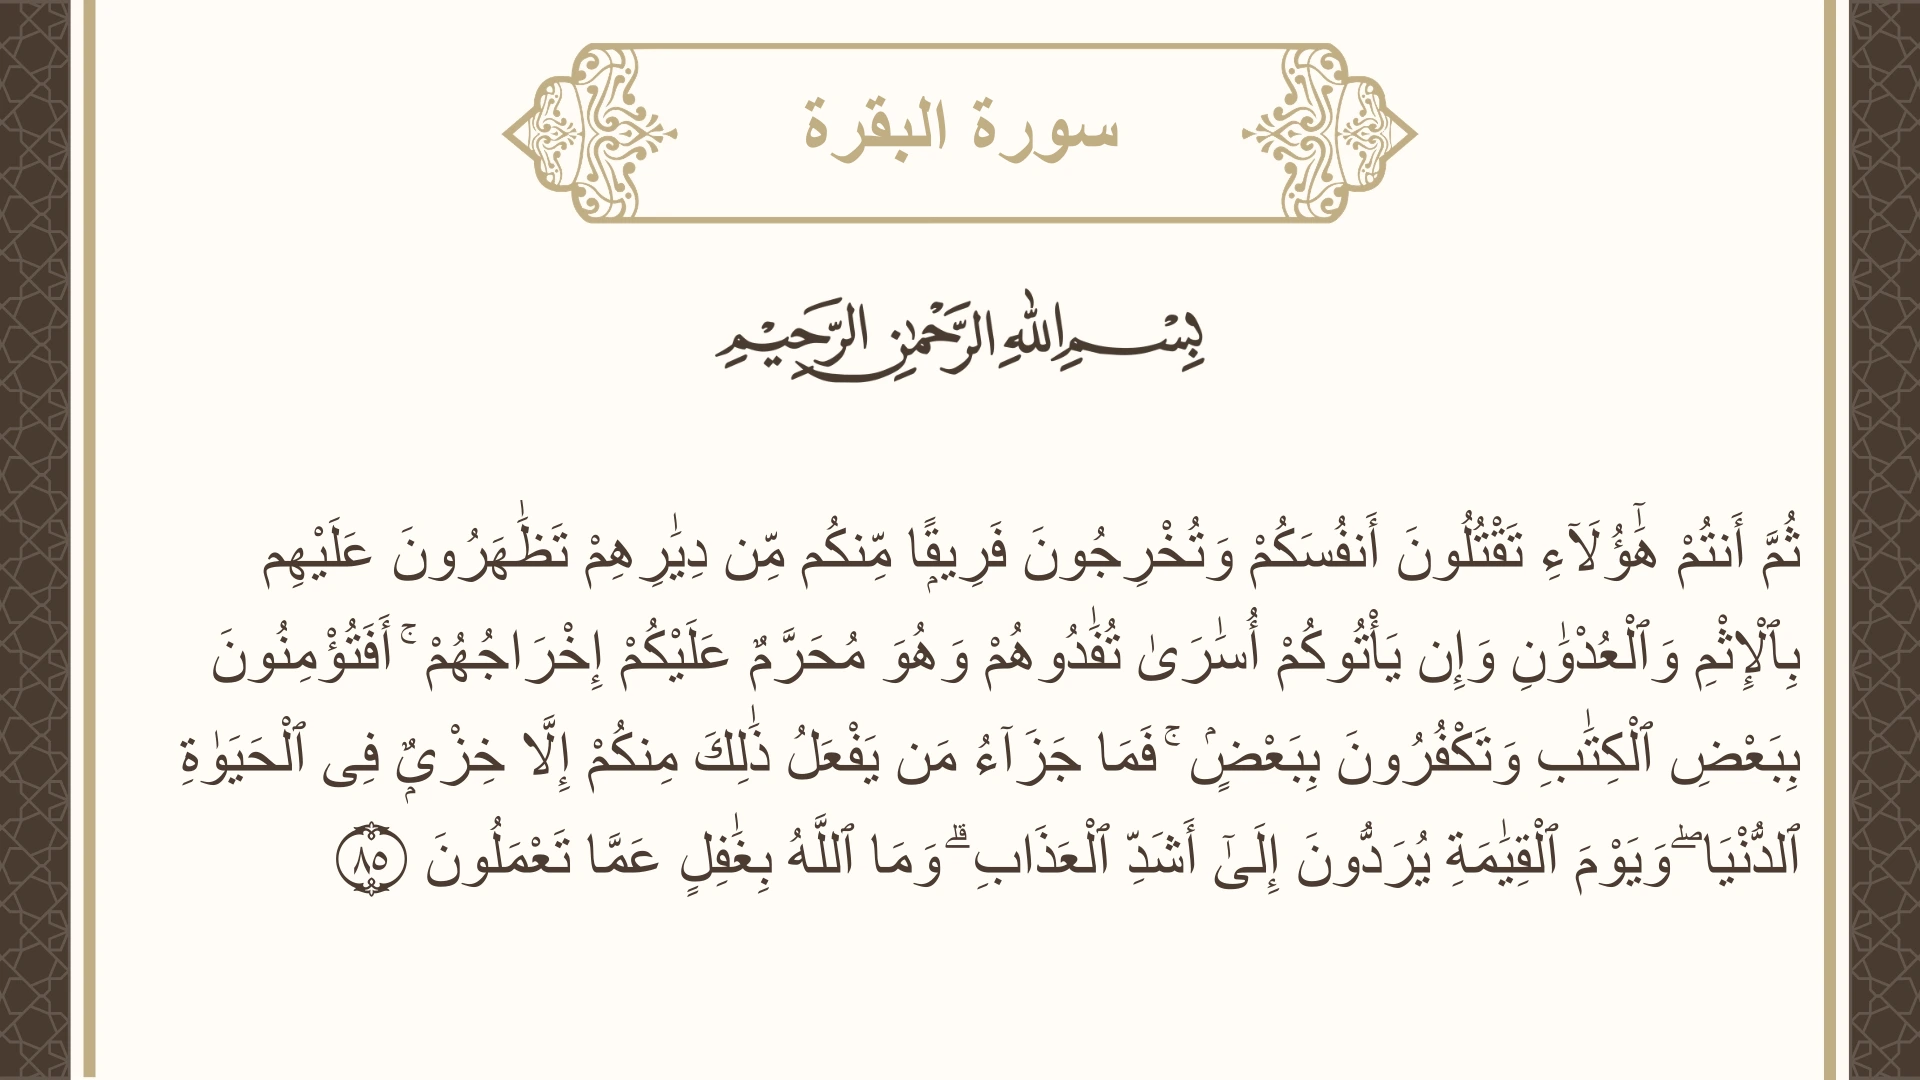 سورة البقرة
بِسْمِ اللهِ الرَّحْمٰنِ الرَّحِيْمِ
ثُمَّ أَنتُمْ هَٰٓؤُلَآءِ تَقْتُلُونَ أَنفُسَكُمْ وَتُخْرِجُونَ فَرِيقًۭا مِّنكُم مِّن دِيَٰرِهِمْ تَظَٰهَرُونَ عَلَيْهِم
بِٱلْإِثْمِ وَٱلْعُدْوَٰنِ وَإِن يَأْتُوكُمْ أُسَٰرَىٰ تُفَٰدُوهُمْ وَهُوَ مُحَرَّمٌ عَلَيْكُمْ إِخْرَاجُهُمْ ۚ أَفَتُؤْمِنُونَ
بِبَعْضِ ٱلْكِتَٰبِ وَتَكْفُرُونَ بِبَعْضٍۢ ۚ فَمَا جَزَآءُ مَن يَفْعَلُ ذَٰلِكَ مِنكُمْ إِلَّا خِزْىٌۭ فِى ٱلْحَيَوٰةِ
ٱلدُّنْيَا ۖ وَيَوْمَ ٱلْقِيَٰمَةِ يُرَدُّونَ إِلَىٰٓ أَشَدِّ ٱلْعَذَابِ ۗ وَمَا ٱللَّهُ بِغَٰفِلٍ عَمَّا تَعْمَلُونَ ٨٥